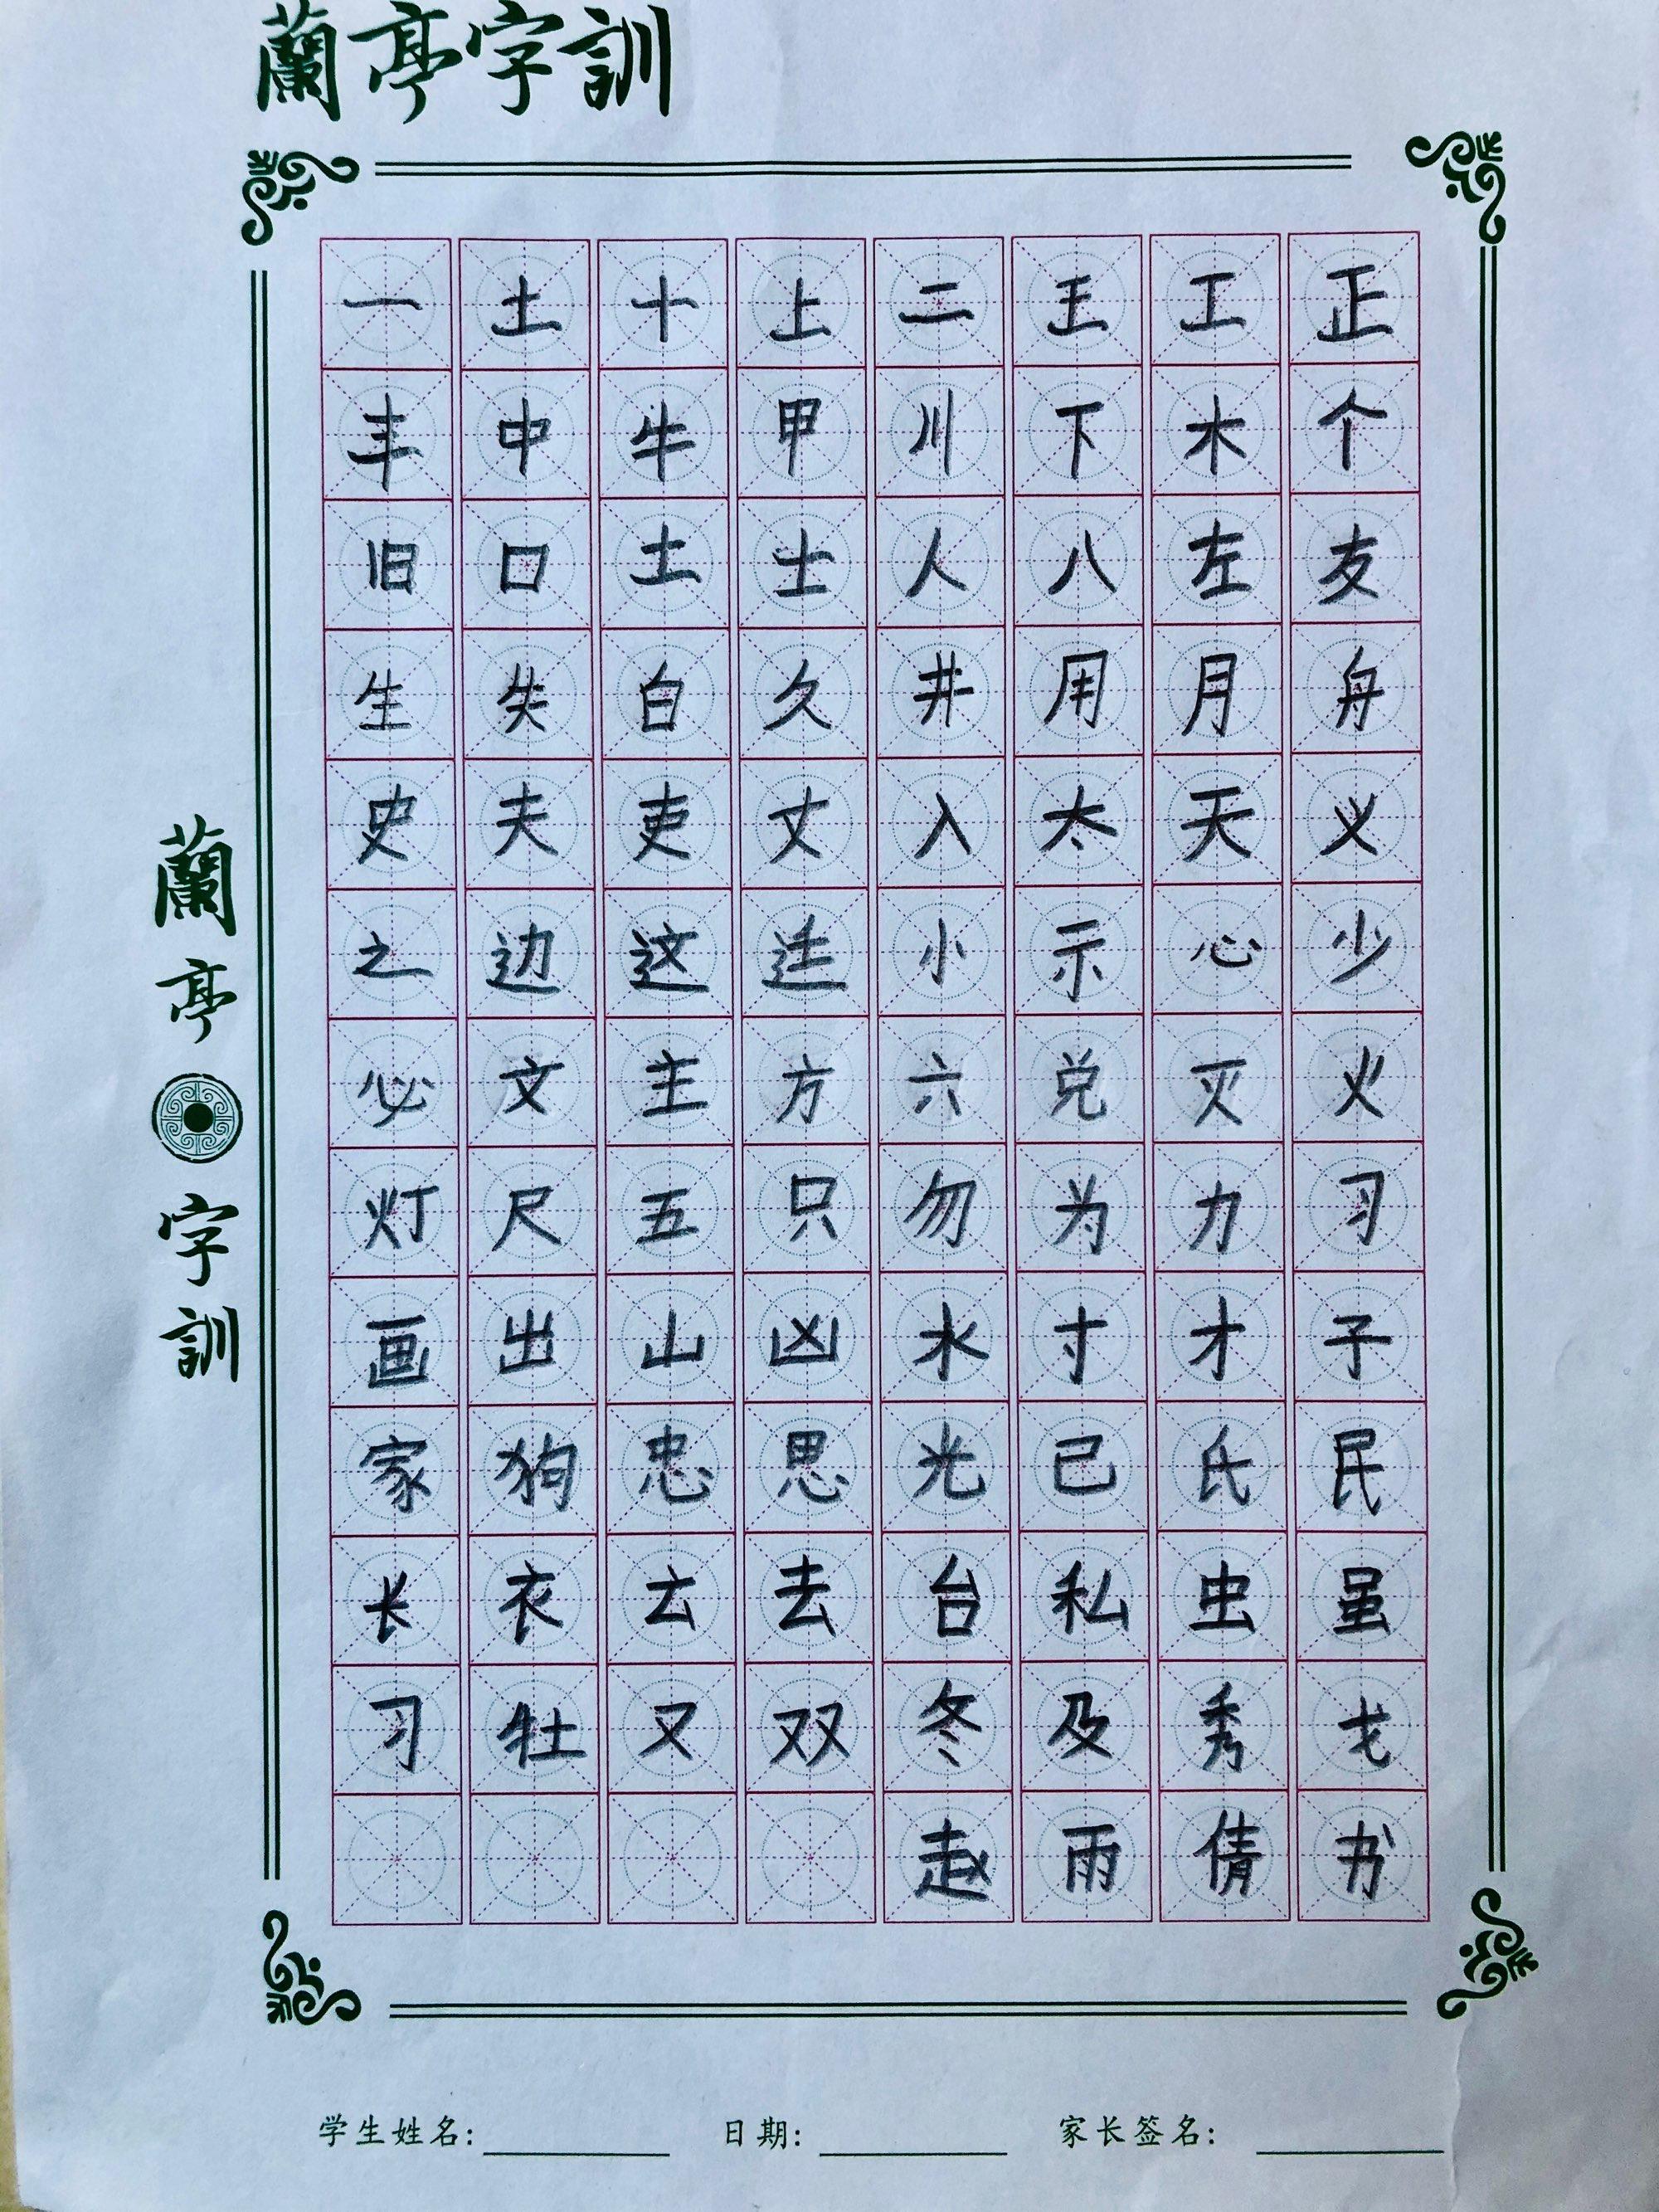 蘭亭字訓
一土十上二王工正
丰中牛甲川下木个
旧口土士人八左友
生失白久井用月舟
史夫吏丈入太天义
之边这迋小示心少
必文主方六兑灭火
灯尺五只勿为力习
画出山凶水寸才子
家狗忠思光己氏民
长衣云去台私虫虽
习牡又双冬及秀戈
赵雨倩书
蘭亭字訓
学生姓名: 日期: 家长签名: